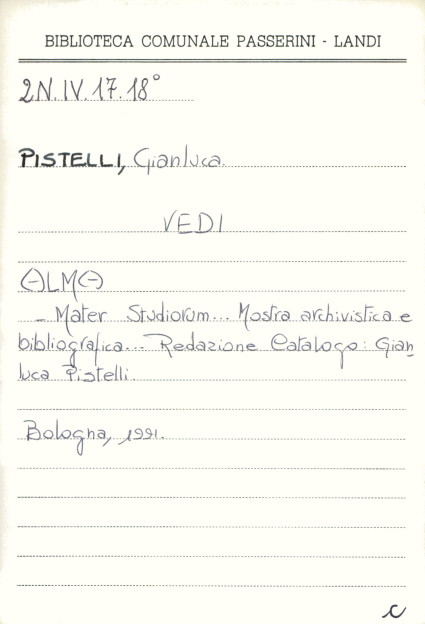 BIBLIOTECA COMUNALE PASSERINI - LANDI
2N.IV.17.18°
PISTELLI, Gianluca.
VEDI
ALMA
- Mater Studiorum... Mostra archivistica e
bibliografica... Redazione Catalogo: Gian
luca Pistelli.
Bologna, 1991.
c